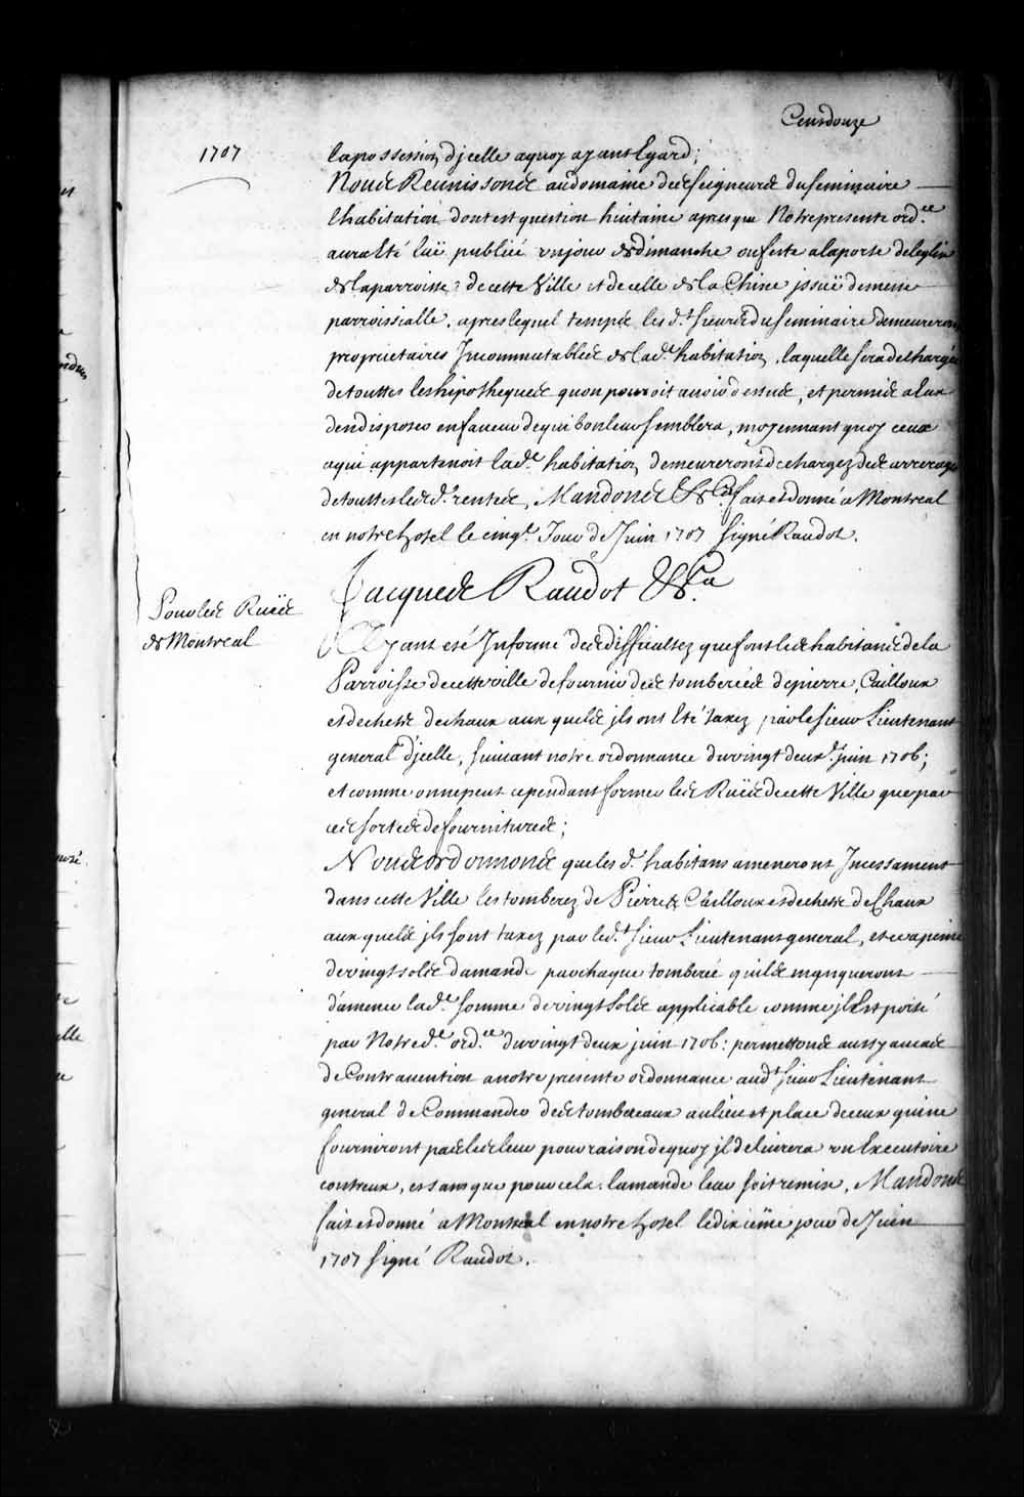 Cent douze
1707
la possession d'jcelle a quoy ayant Egard;
Nous Reunissons au domaine des seigneurs du seminaire
l'habitation dont est question huitaine apres que Notre presente ord.ce
aura Eté luë publiée un jour de dimanche ou feste a la porte de leglise
de la parroisse de cette Ville et de celle de la Chine jssuë de messe
parroissialle, apres lequel temps les d.ts sieurs du seminaire demeureront
proprietaires Jncommutables de lad.e habitation, laquelle sera dechargée
de touttes les hipotheques quon pourroit avoir dessus, et permis a Eux
den disposer en faveur de qui bon leur semblera, moyennant quoy ceux
a qui appartenoit lad.e habitation demeureront dechargez des arrerages
de touttes les d.es rentes, Mandons &c.a fait et donné a Montreal
en notre hotel le cinq.e Jour de Juin 1707 signé Raudot.
Jacques Raudot &c.a
Pour les Ruës
de Montreal
Ayant eté Jnformé des difficultez que font les habitans de la
Parroisse de cette ville de fournir des tomberées de pierre, Cailloux
et dechets de chaux aux quels jls ont Eté taxez par le sieur Lieutenant
general d'jcelle, suivant notre ordonnance du vingt deux Juin 1706;
et comme on ne peut cependant former les Ruës de cette Ville que par
ces sortes de fournitures;
Nous ordonnons que les d. habitans ameneront Jncessament
dans cette Ville les tomberez de Pierre & Cailloux et dechets de Chaux
aux quels jls sont taxez par led.t sieur Lieutenant general, et ce a peine
de vingt sols damande par chaque tomberée quils manqueront
damener lad.e somme de vingt sols applicable comme jl Est porté
par Notred.e ord.ce du vingt deux juin 1706: permettons aussy au cas
de Contravention a notre presente ordonnance aud.t sieur Lieutenant
general de Commander des tombereaux au lieu et place de ceux qui ne
fourniront pas les leur pour raison de quoy jl delivrera un Executoire
contreux, et sans que pour cela lamande leur soit remise, Mandons
fait et donné a Montreal en notre hotel le dixiéme jour de Juin
1707 signé Raudot.